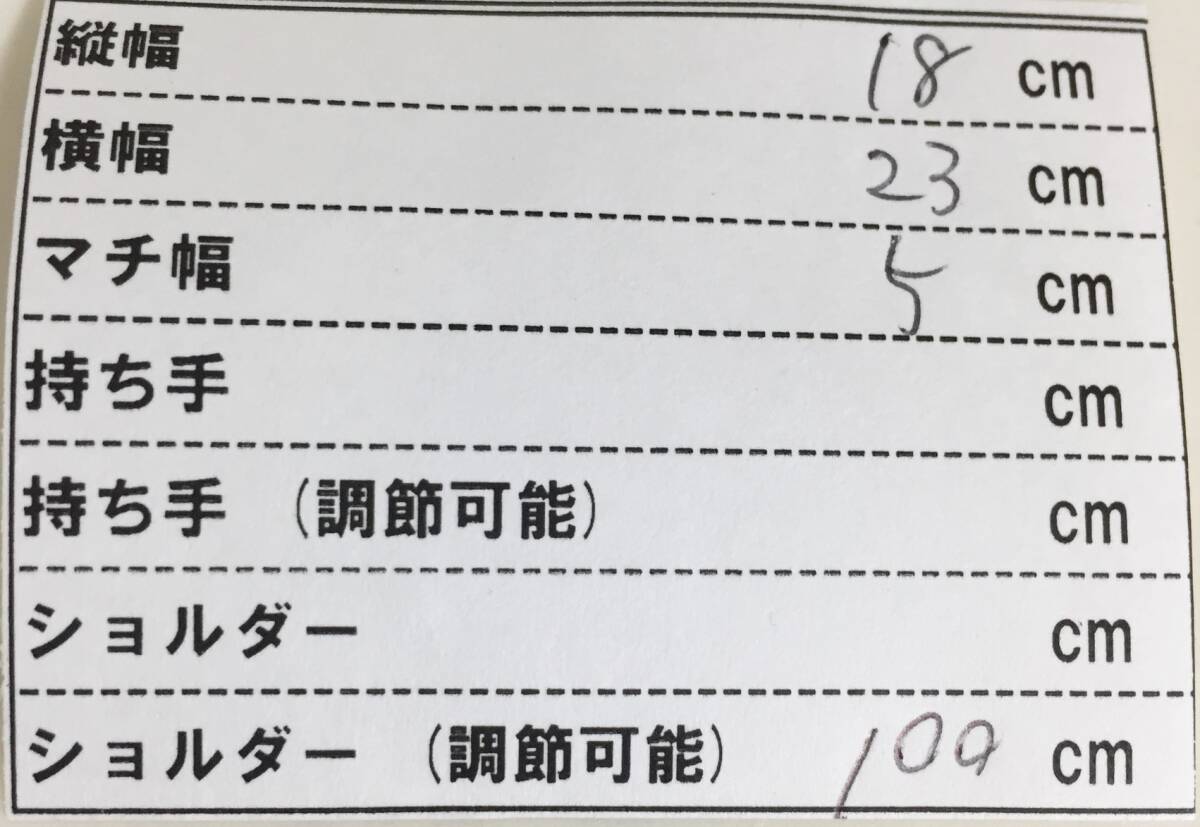 縦幅 18 cm
横幅 23 cm
マチ幅 5 cm
持ち手 cm
持ち手 (調節可能) cm
ショルダー cm
ショルダー (調節可能) 100 cm